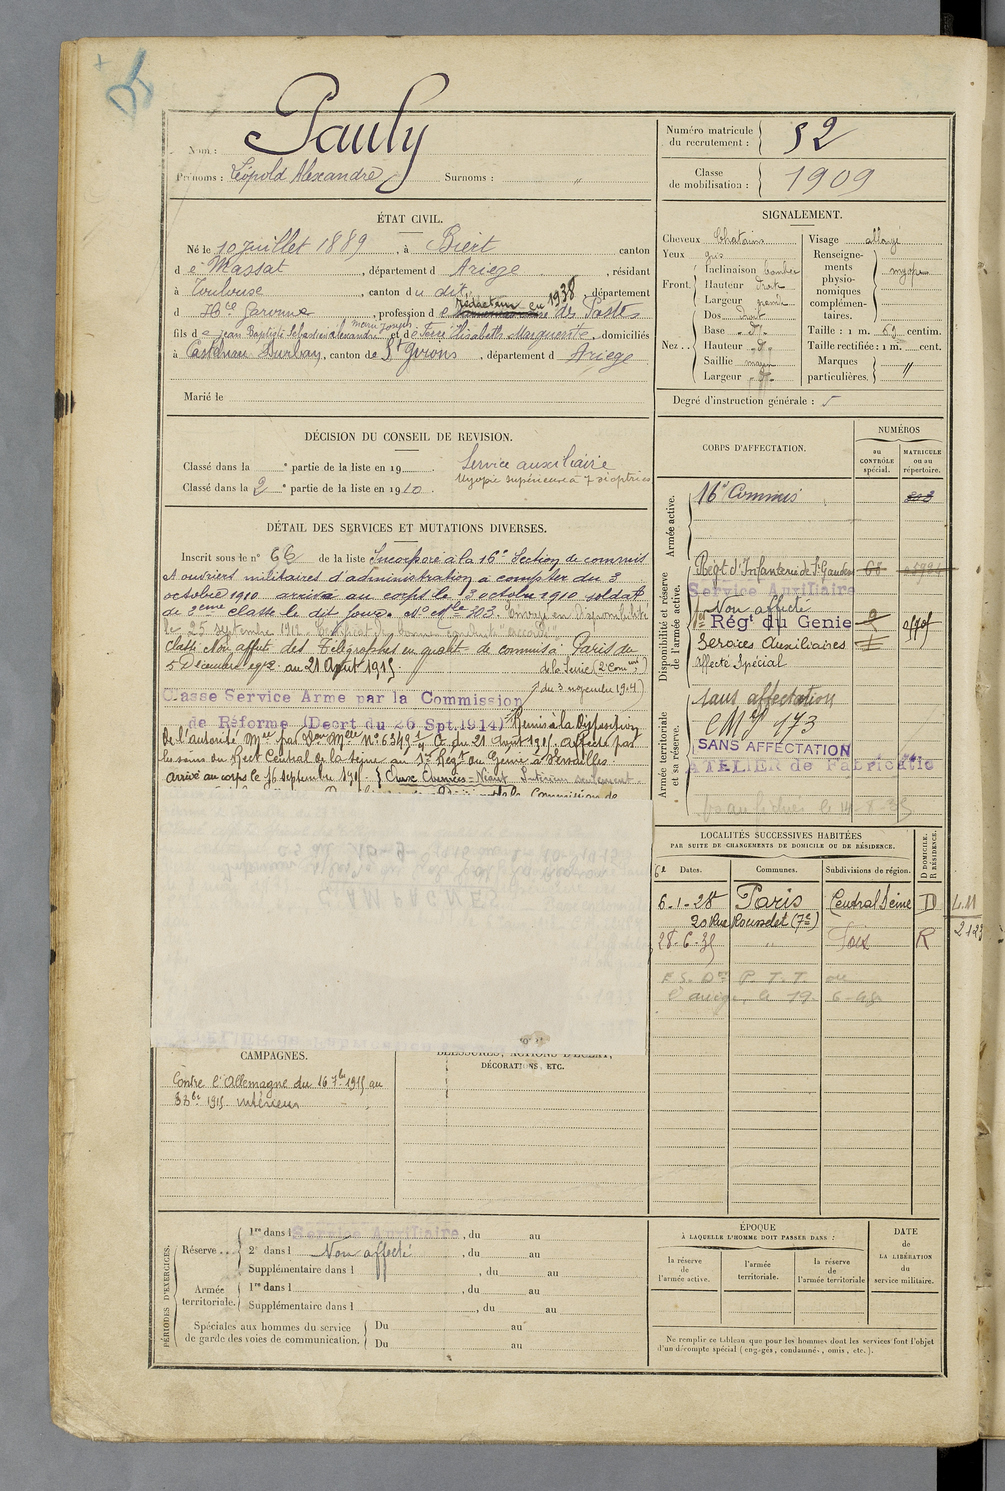 Nom : Pauly
Prénoms : Léopold Alexandre Surnoms : "
Numéro matricule du recrutement : 52
Classe de mobilisation : 1909
ÉTAT CIVIL.
Né le 10 Juillet 1889, à Biert canton
de Massat, département d Ariege, résidant
à Toulouse, canton du dit, département
d Hte Garonne, profession de rédacteur en 1938 des Postes
fils de Jean Baptiste Sébastien Alexandre et de Elisabeth Marguerite, domiciliés
à Castelnau Durban, canton de St Girons, département d Ariege
Marié le
SIGNALEMENT.
Cheveux Chatains
Yeux gris
Front. Inclinaison bombée
Hauteur droit
Largeur grande
Nez .. Dos droit
Base d°
Hauteur d°
Saillie moyen
Largeur d°
Visage allongé
Renseignements physionomiques complémentaires. myope
Taille : 1 m. 69 centim.
Taille rectifiée : 1 m. cent.
Marques particulières. "
Degré d'instruction générale : 5
DÉCISION DU CONSEIL DE REVISION.
Classé dans la e partie de la liste en 19 Service auxiliaire
Classé dans la 2 e partie de la liste en 1910. Myopie supérieure à 7 dioptries
DÉTAIL DES SERVICES ET MUTATIONS DIVERSES.
Inscrit sous le n° 66 de la liste Incorporé à la 16e Section de commis
et ouvriers militaires d'administration à compter du 3
octobre 1910 arrivé au corps le 3 octobre 1910 soldat
de 2eme classe le dit jour. N° Mle 303. Envoyé en disponibilité
le 25 septembre 1912. Certificat de bonne conduite accordé.
Classé Non affecté des Télégraphes en qualité de commis à Paris du
5 Décembre 1912 au 21 Août 1915. de la Seine (2e Comon
du 3 novembre 1914)
Classé Service Armé par la Commission
de Réforme (Decrt du 26 Spt.1914) Remis à la disposition
de l'autorité Mre par Don Mlle N° 6349 du 21 Août 1915. Affecté par
les soins du Rect Central de la Seine au 1er Regt du Genie à Versailles.
arrivé au corps le 16 septembre 1915.
Intérieur seulement.
Commission de
CORPS D'AFFECTATION.
NUMÉROS
au CONTRÔLE spécial.
MATRICULE ou au répertoire.
Armée active.
16e Commis 303
Disponibilité et réserve de l'armée active.
Regt d'Infanterie de St Gaudens 68
Service Auxiliaire
Non affecté
1er Régt du Genie
Services Auxiliaires
affecté Spécial
Armée territoriale et sa réserve.
sans affectation
CMI 173
SANS AFFECTATION
ATELIER de Fabricatio
le 14-8-35
LOCALITÉS SUCCESSIVES HABITÉES
PAR SUITE DE CHANGEMENTS DE DOMICILE OU DE RÉSIDENCE.
Dates. Communes. Subdivisions de région. D DOMICILE. R RÉSIDENCE.
6-1-28 Paris Central Seine D
20 Rue Rousselet (7e)
28-6-35 " Foix R
P. T. T.
l'ariège, le 19-
CAMPAGNES.
Contre l'Allemagne du 16 7bre 1915 au
1915 intérieur
BLESSURES, ACTIONS D'ÉCLAT,
DÉCORATIONS, ETC.
PÉRIODES D'EXERCICES.
Réserve ... 1re dans l Service Auxiliaire, du au
2e dans l Non affecté, du au
Supplémentaire dans l , du au
Armée territoriale. 1re dans l , du au
Supplémentaire dans l , du au
Spéciales aux hommes du service de garde des voies de communication. Du au
Du au
ÉPOQUE
À LAQUELLE L'HOMME DOIT PASSER DANS :
la réserve de l'armée active.
l'armée territoriale.
la réserve de l'armée territoriale
DATE de LA LIBÉRATION du service militaire.
Ne remplir ce tableau que pour les hommes dont les services font l'objet
d'un décompte spécial (engagés, condamnés, omis, etc.).